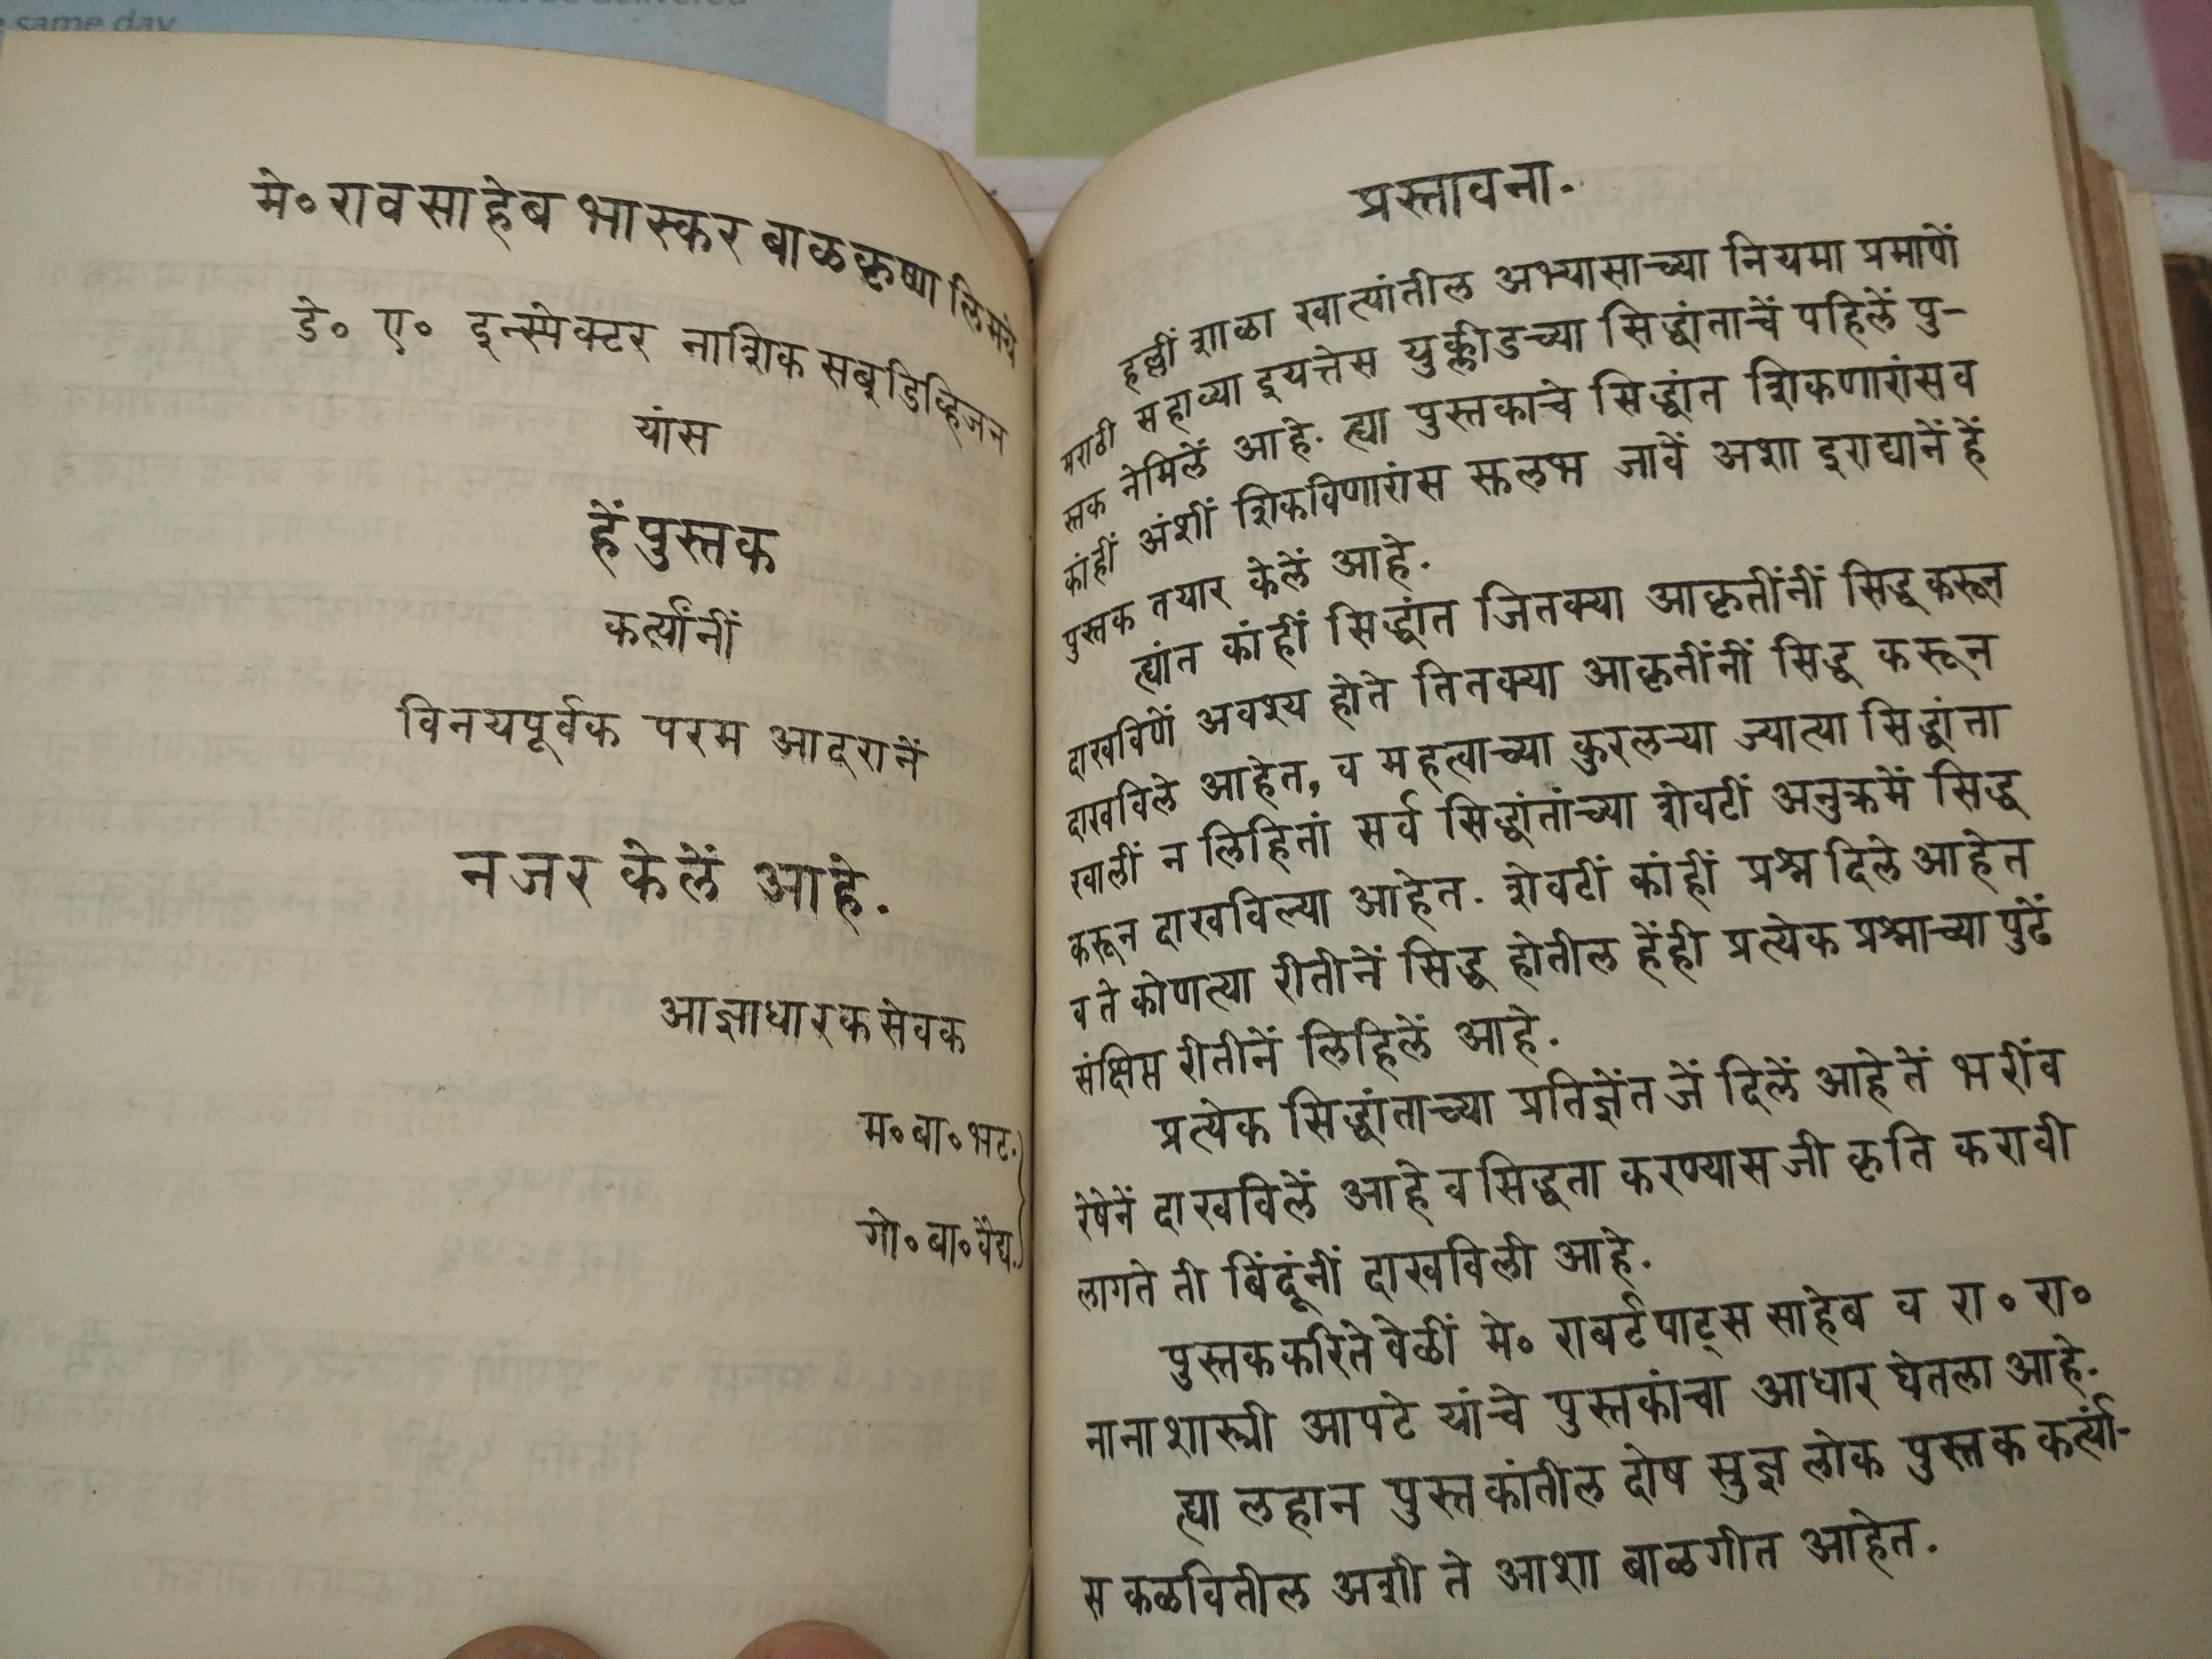 same day
मे० रावसाहेब भास्कर बाळकृष्ण लिमये
डे० ए० इन्स्पेक्टर नाशिक सब्‌डिव्हिजन
यांस
हें पुस्तक
कर्त्यांनीं
विनयपूर्वक परम आदरानें
नजर केलें आहे.
आज्ञाधारक सेवक
म० बा० भट.
गो० बा० वैद्य.
प्रस्तावना.
हल्लीं शाळा खात्यांतील अभ्यासाच्या नियमा प्रमाणें
मराठी सहाव्या इयत्तेस युक्लीडच्या सिद्धांताचें पहिलें पु-
स्तक नेमिलें आहे. त्या पुस्तकाचे सिद्धांत शिकणारांस व
कांहीं अंशीं शिकविणारांस सुलभ जावें अशा इराद्यानें हें
पुस्तक तयार केलें आहे.
ह्यांत कांहीं सिद्धांत जितक्या आकृतींनीं सिद्ध करून
दाखविणें अवश्य होते तितक्या आकृतींनीं सिद्ध करून
दाखविले आहेत, व महत्वाच्या कुरलऱ्या ज्यात्या सिद्धांता
खालीं न लिहितां सर्व सिद्धांतांच्या शेवटीं अनुक्रमें सिद्ध
करून दाखविल्या आहेत. शेवटीं कांहीं प्रश्न दिले आहेत
व ते कोणत्या रीतीनें सिद्ध होतील हेंही प्रत्येक प्रश्नाच्या पुढें
संक्षिप्त रीतीनें लिहिलें आहे.
प्रत्येक सिद्धांताच्या प्रतिज्ञेंत जें दिलें आहे तें भरींव
रेषेनें दाखविलें आहे व सिद्धता करण्यास जी कृति करावी
लागते ती बिंदूंनीं दाखविली आहे.
पुस्तक करितेवेळीं मे० राबर्ट पाट्स साहेब व रा० रा०
नानाशास्त्री आपटे यांचे पुस्तकांचा आधार घेतला आहे.
ह्या लहान पुस्तकांतील दोष सुज्ञ लोक पुस्तक कर्त्यां-
स कळवितील अशी ते आशा बाळगीत आहेत.